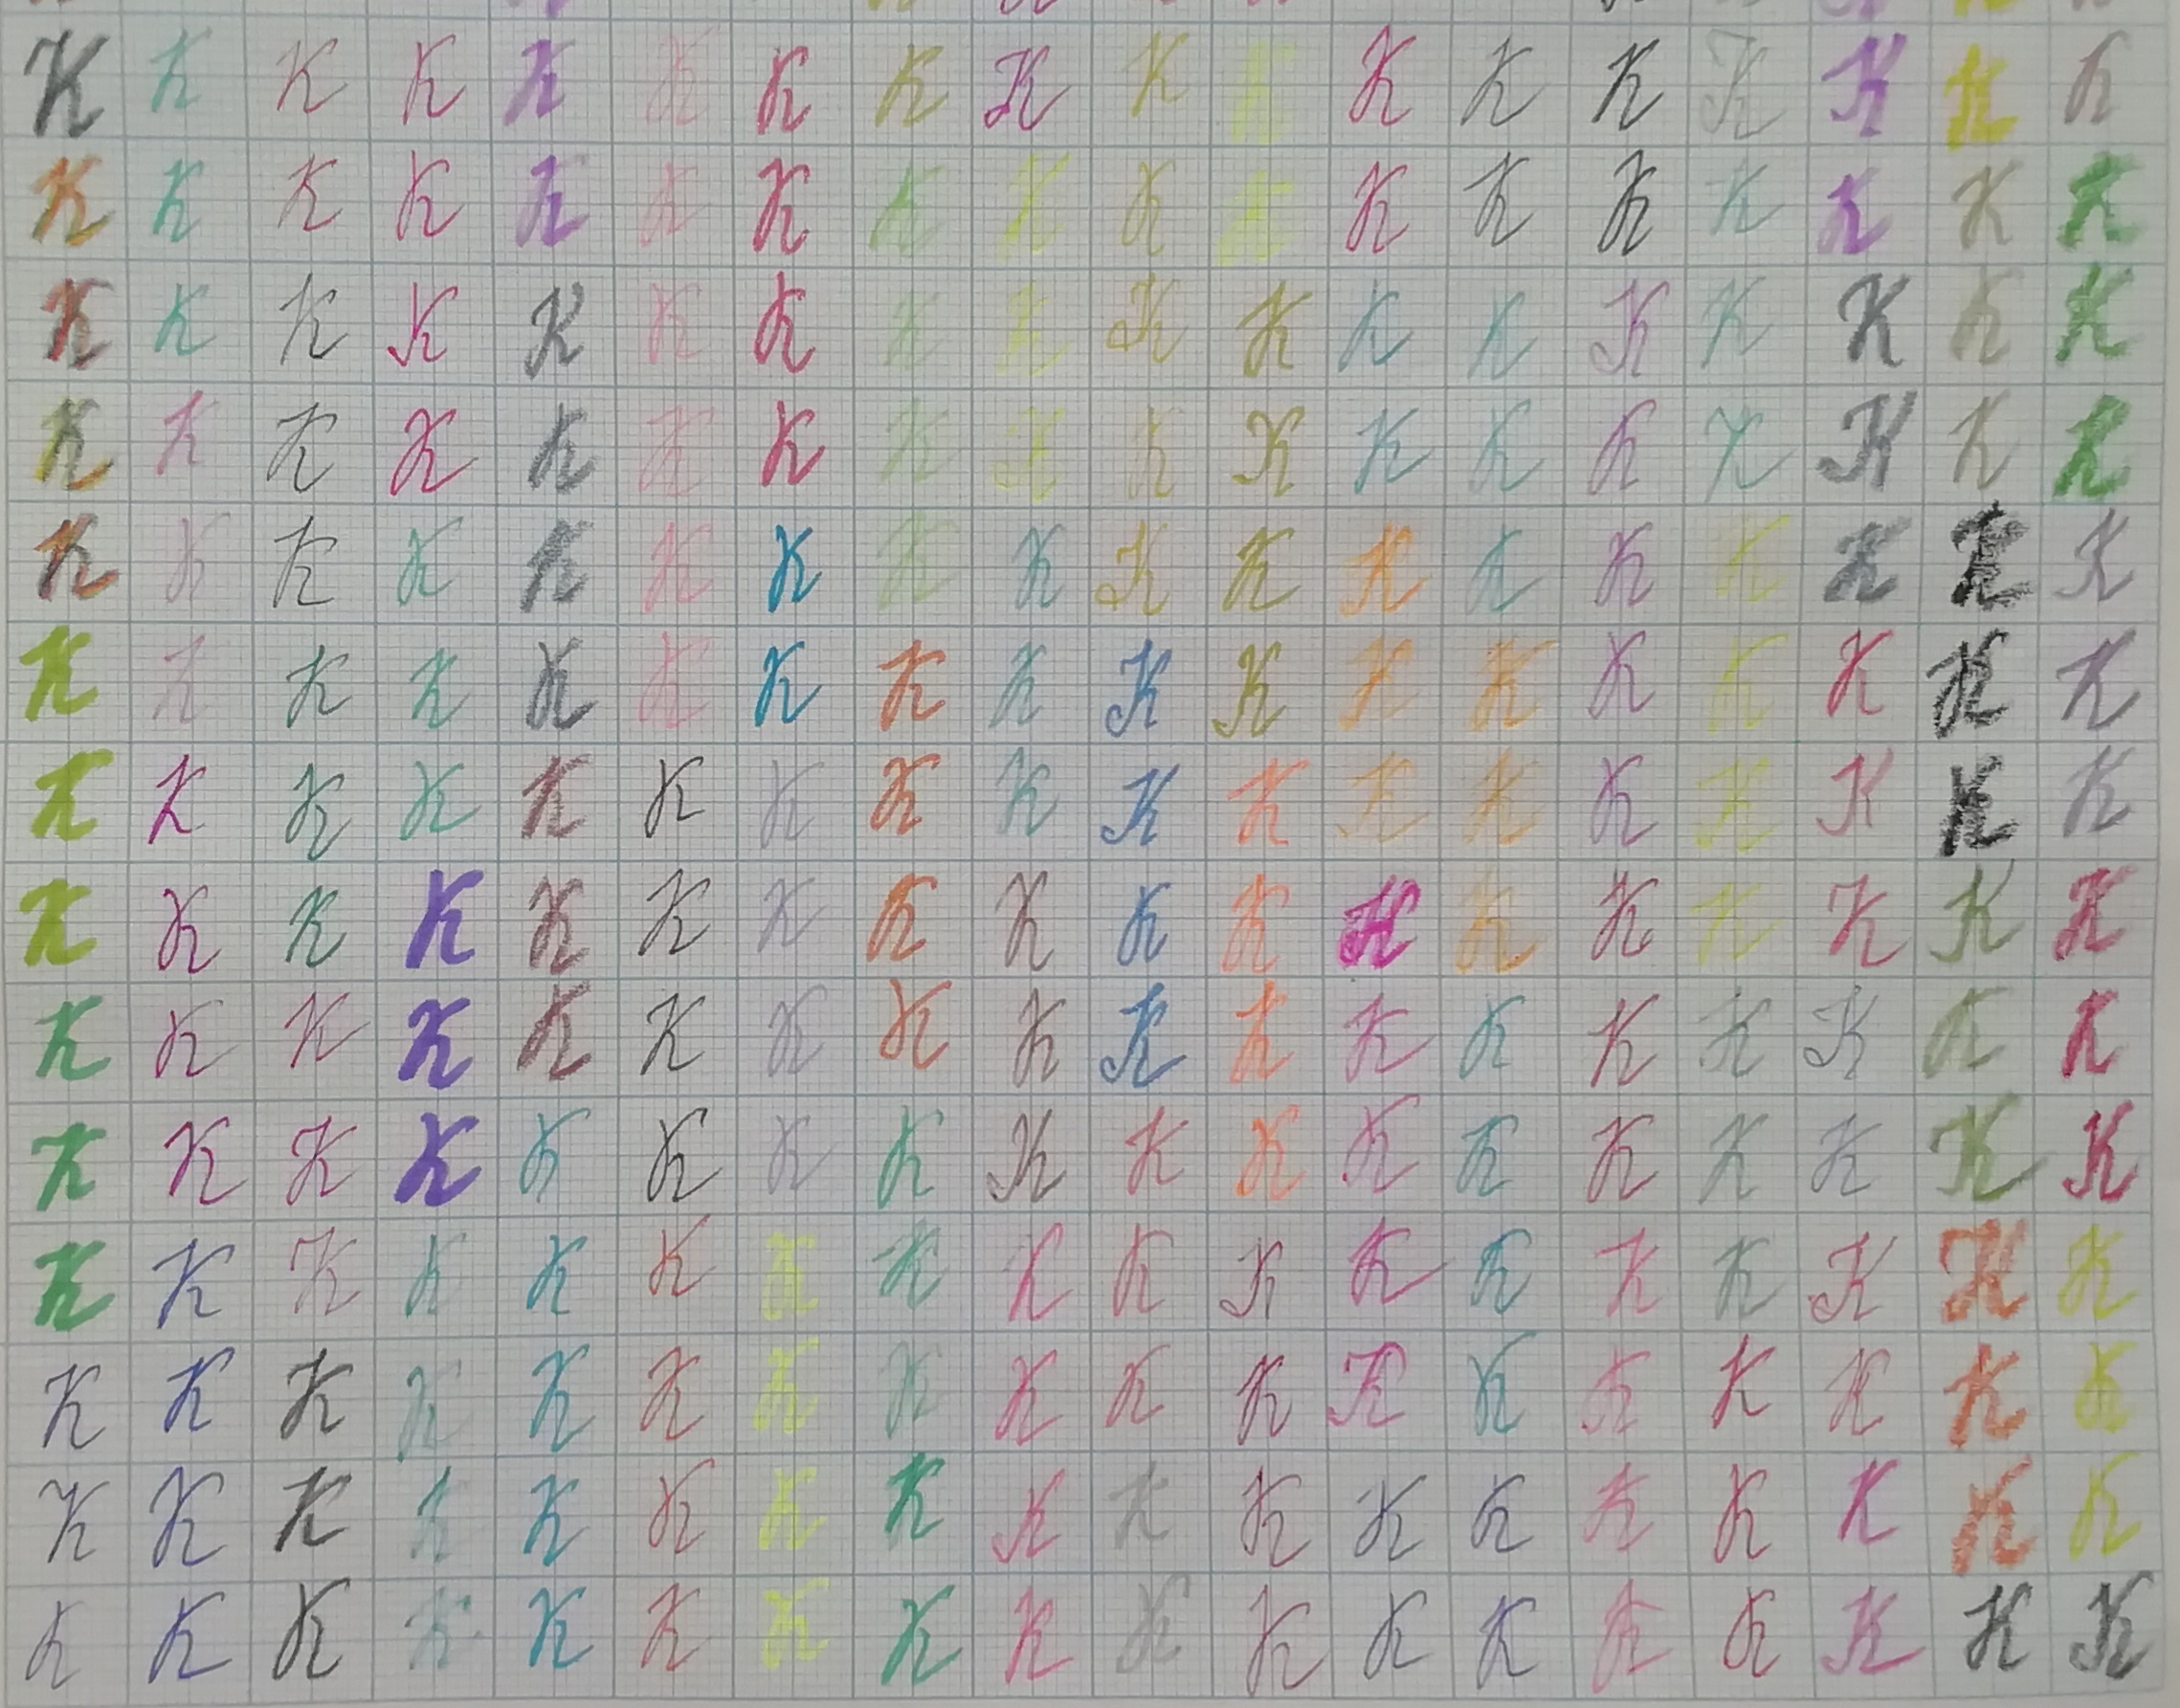 K K K K K K K K K K K K K K K K K K
K K K K K K K K K K K K K K K K K K
K K K K K K K K K K K K K K K K K K
K K K K K K K K K K K K K K K K K K
K K K K K K K K K K K K K K K K K K
K K K K K K K K K K K K K K K K K K
K K K K K K K K K K K K K K K K K K
K K K K K K K K K K K K K K K K K K
K K K K K K K K K K K K K K K K K K
K K K K K K K K K K K K K K K K K K
K K K K K K K K K K K K K K K K K K
K K K K K K K K K K K K K K K K K K
K K K K K K K K K K K K K K K K K K
K K K K K K K K K K K K K K K K K K